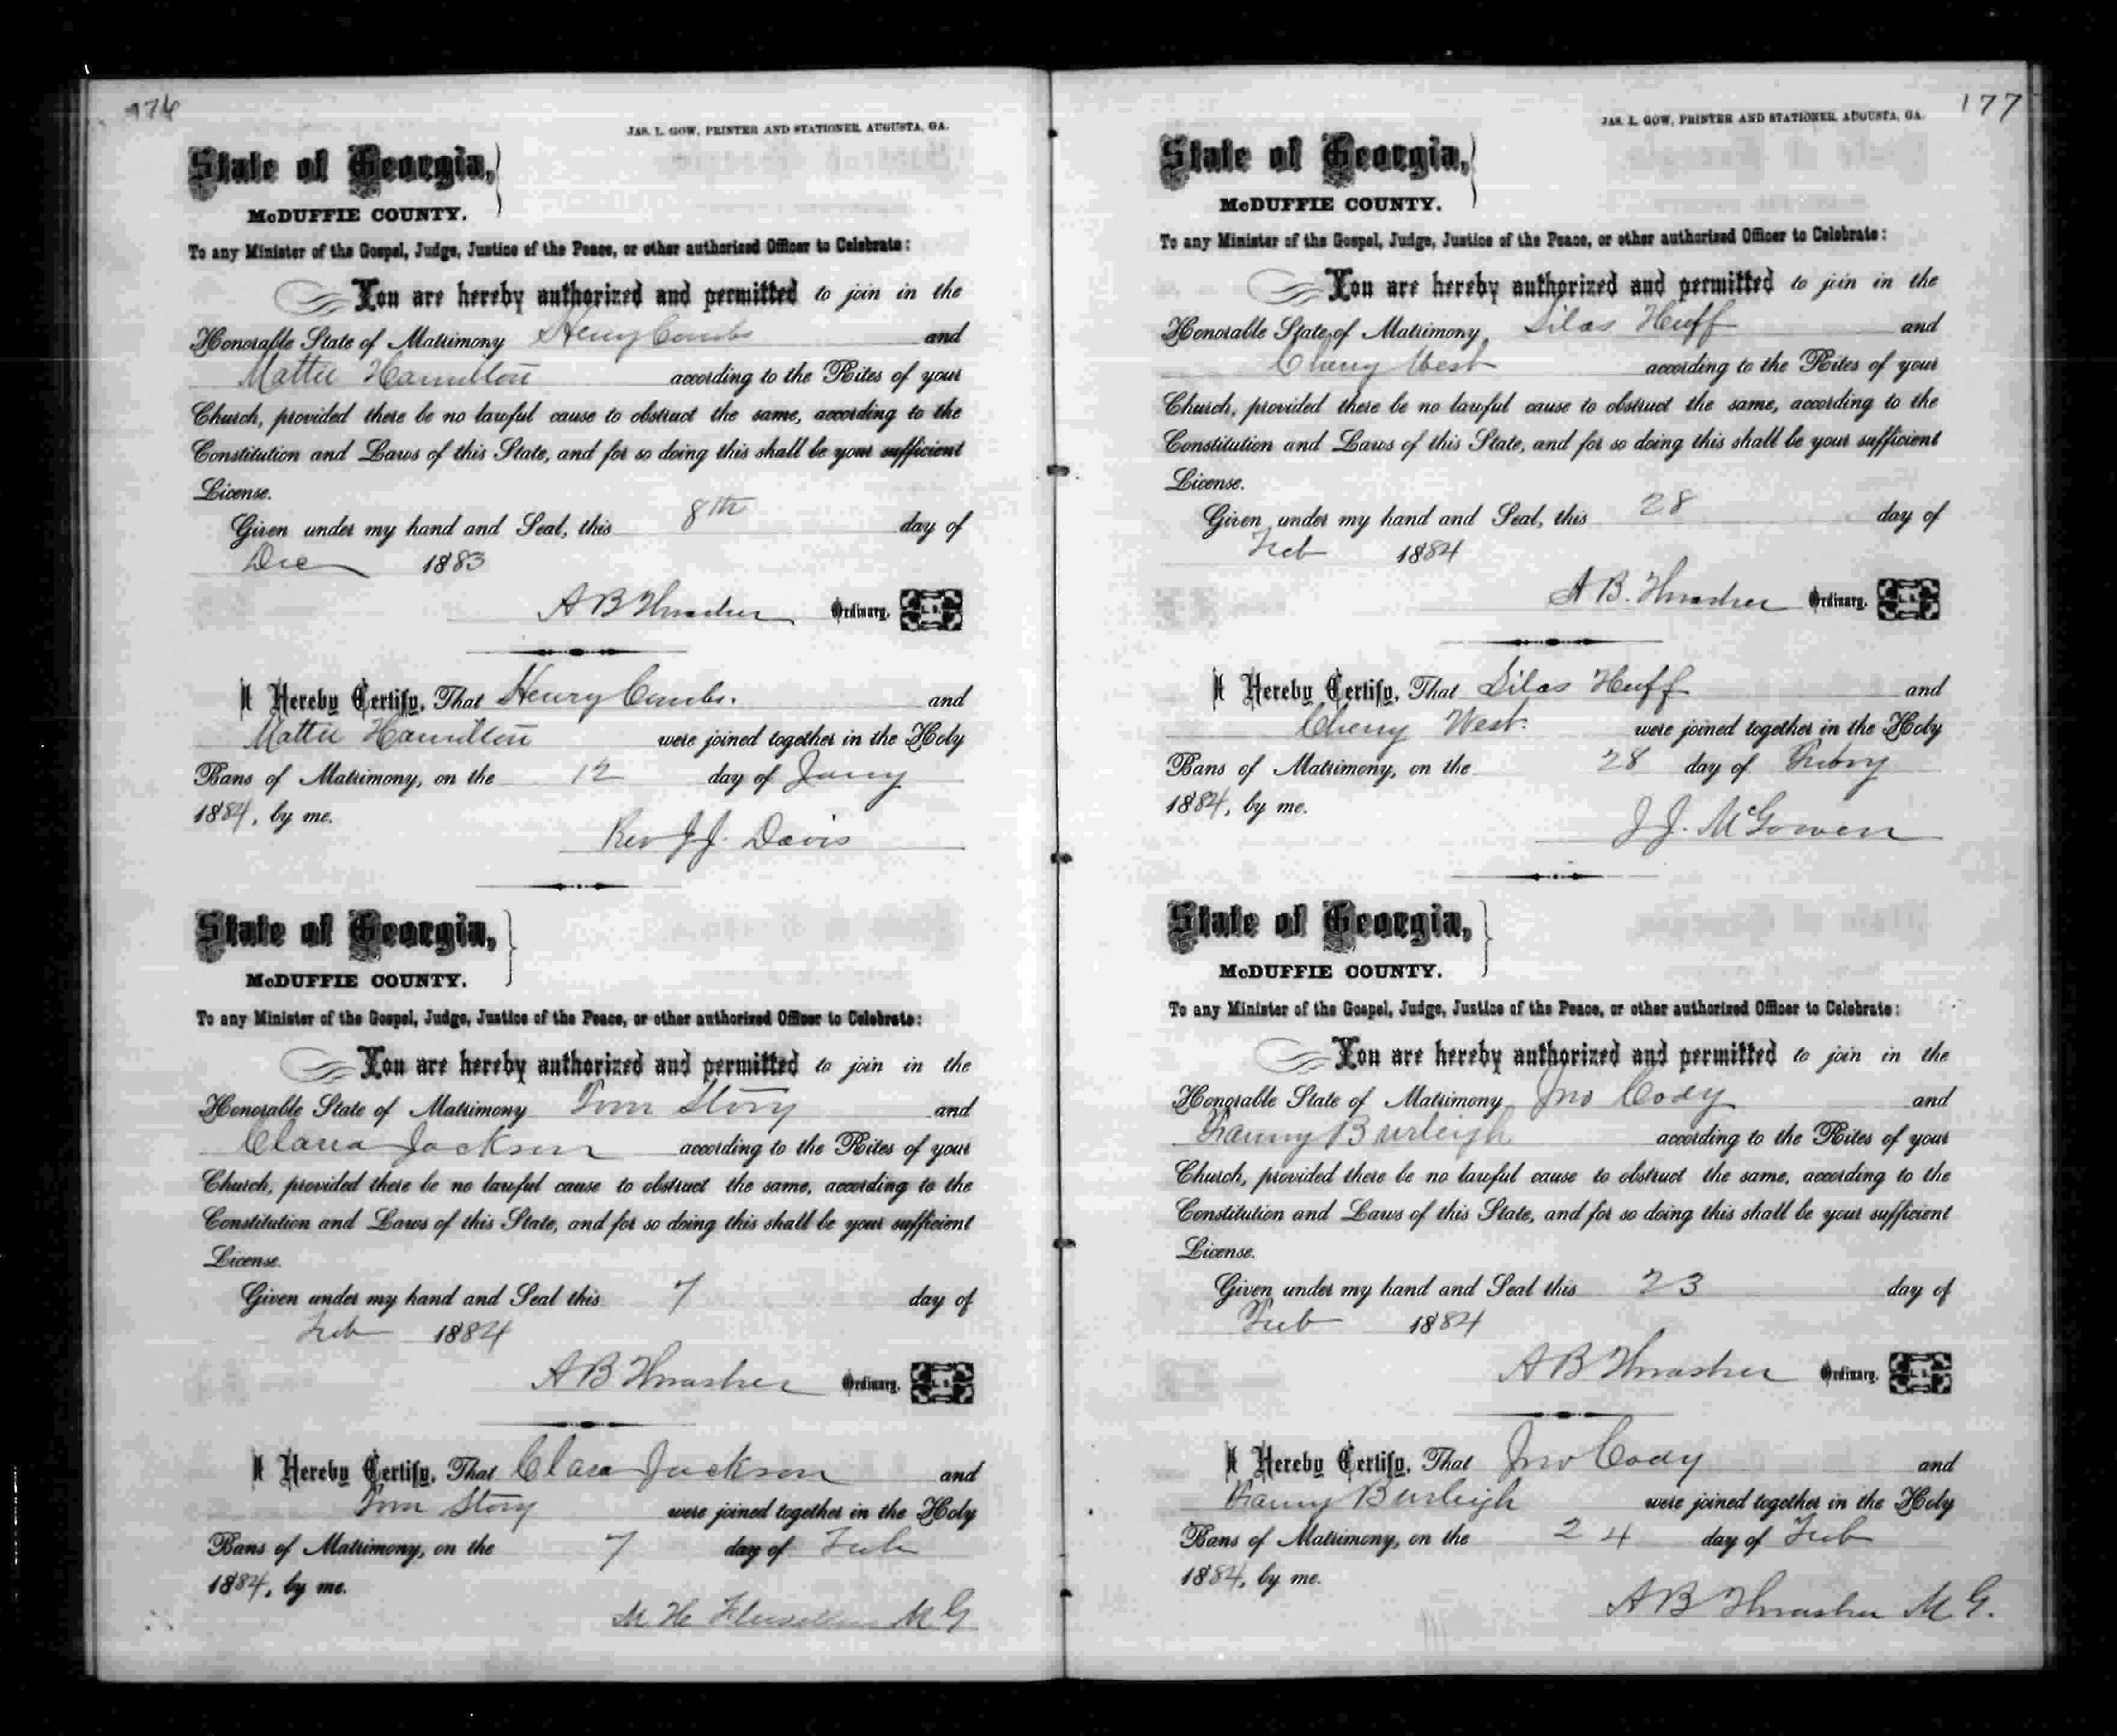 176
JAS. L. GOW, PRINTER AND STATIONER, AUGUSTA, GA.
State of Georgia,
McDUFFIE COUNTY.
To any Minister of the Gospel, Judge, Justice of the Peace, or other authorized Officer to Celebrate:
You are hereby authorized and permitted to join in the
Honorable State of Matrimony Henry Combs and
Mattie Hamilton according to the Rites of your
Church, provided there be no lawful cause to obstruct the same, according to the
Constitution and Laws of this State, and for so doing this shall be your sufficient
License.
Given under my hand and Seal, this 8th day of
Dec 1883
A B Thrasher Ordinary. L. S.
I Hereby Certify, That Henry Combs. and
Mattie Hamilton were joined together in the Holy
Bans of Matrimony, on the 12 day of Jany
1884, by me.
Rev J. J. Davis
State of Georgia,
McDUFFIE COUNTY.
To any Minister of the Gospel, Judge, Justice of the Peace, or other authorized Officer to Celebrate:
You are hereby authorized and permitted to join in the
Honorable State of Matrimony Tom Story and
Clara Jackson according to the Rites of your
Church, provided there be no lawful cause to obstruct the same, according to the
Constitution and Laws of this State, and for so doing this shall be your sufficient
License.
Given under my hand and Seal this 7 day of
Feb 1884
A B Thrasher Ordinary. L. S.
I Hereby Certify, That Clara Jackson and
Tom Story were joined together in the Holy
Bans of Matrimony, on the 7 day of Feb
1884, by me.
M. G
177
JAS. L. GOW, PRINTER AND STATIONER, AUGUSTA, GA.
State of Georgia,
McDUFFIE COUNTY.
To any Minister of the Gospel, Judge, Justice of the Peace, or other authorized Officer to Celebrate:
You are hereby authorized and permitted to join in the
Honorable State of Matrimony, Silas Huff and
Cherry West according to the Rites of your
Church, provided there be no lawful cause to obstruct the same, according to the
Constitution and Laws of this State, and for so doing this shall be your sufficient
License.
Given under my hand and Seal, this 28 day of
Feb 1884
A B. Thrasher Ordinary. L. S.
I Hereby Certify, That Silas Huff and
Cherry West. were joined together in the Holy
Bans of Matrimony, on the 28 day of Febry
1884, by me.
J. J. McGowen
State of Georgia,
McDUFFIE COUNTY.
To any Minister of the Gospel, Judge, Justice of the Peace, or other authorized Officer to Celebrate:
You are hereby authorized and permitted to join in the
Honorable State of Matrimony Jno Cody and
Fanny Burleigh according to the Rites of your
Church, provided there be no lawful cause to obstruct the same, according to the
Constitution and Laws of this State, and for so doing this shall be your sufficient
License.
Given under my hand and Seal this 23 day of
Feb 1884
A B Thrasher Ordinary. L. S.
I Hereby Certify, That Jno Cody and
Fanny Burleigh were joined together in the Holy
Bans of Matrimony, on the 24 day of Feb
1884, by me.
A B Thrasher M. G.